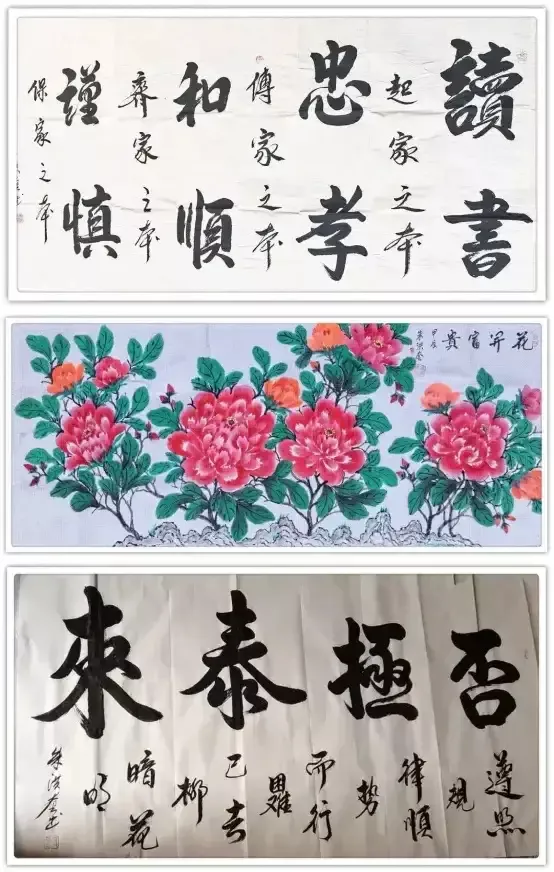 讀書
起家之本
忠孝
傳家之本
和順
齊家之本
謹慎
保家之本
花开富貴
甲辰
否極泰來
遵照
規
律順
勢
而行
已去
柳
暗花
明